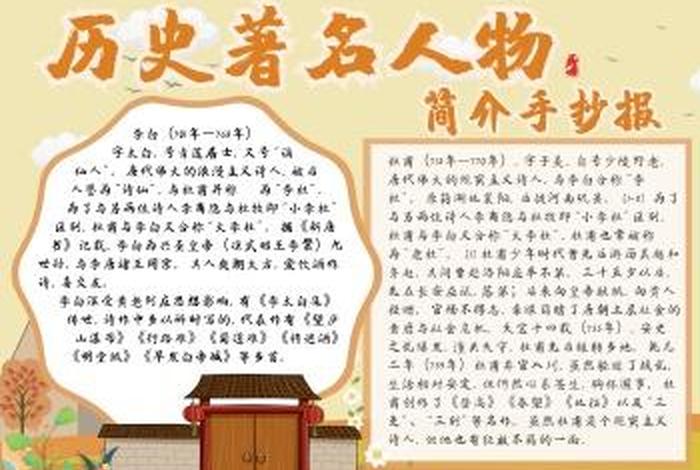 历史著名人物
简介手抄报
李白（701年—762年）
字太白，号青莲居士，又号“谪
仙人”，唐代伟大的浪漫主义诗人，被后
人誉为“诗仙”，与杜甫并称 为“李杜”，
为了与另两位诗人李商隐与杜牧即“小李杜”
区别，杜甫与李白又合称“大李杜”。据《新唐
书》记载，李白为兴圣皇帝（凉武昭王李暠）九
世孙，与李唐诸王同宗。其人爽朗大方，爱饮酒作
诗，喜交友。
李白深受黄老列庄思想影响，有《李太白集》
传世，诗作中多以醉时写的，代表作有《望庐
山瀑布》《行路难》《蜀道难》《将进酒》
《明堂赋》《早发白帝城》等多首。
杜甫（712年—770年），字子美，自号少陵野老，
唐代伟大的现实主义诗人，与李白合称“李
杜”。原籍湖北襄阳，后徙河南巩县。 为了
与另两位诗人李商隐与杜牧即“小李杜”区别，
杜甫与李白又合称“大李杜”，杜甫也常被称
为“老杜”。 杜甫少年时代曾先后游历吴越和
齐赵，其间曾赴洛阳应举不第。三十五岁以后，
先在长安应试，落第；后来向皇帝献赋，向贵人
投赠。官场不得志，亲眼目睹了唐朝上层社会的
奢靡与社会危机。天宝十四载（755年），安史
之乱爆发，潼关失守，杜甫先后辗转多地。乾元
二年（759年）杜甫弃官入川，虽然躲避了战乱，
生活相对安定，但仍然心系苍生，胸怀国事。杜
甫创作了《登高》《春望》《北征》以及“三
吏”、“三别”等名作。虽然杜甫是个现实主义
诗人，但他也有狂放不羁的一面，